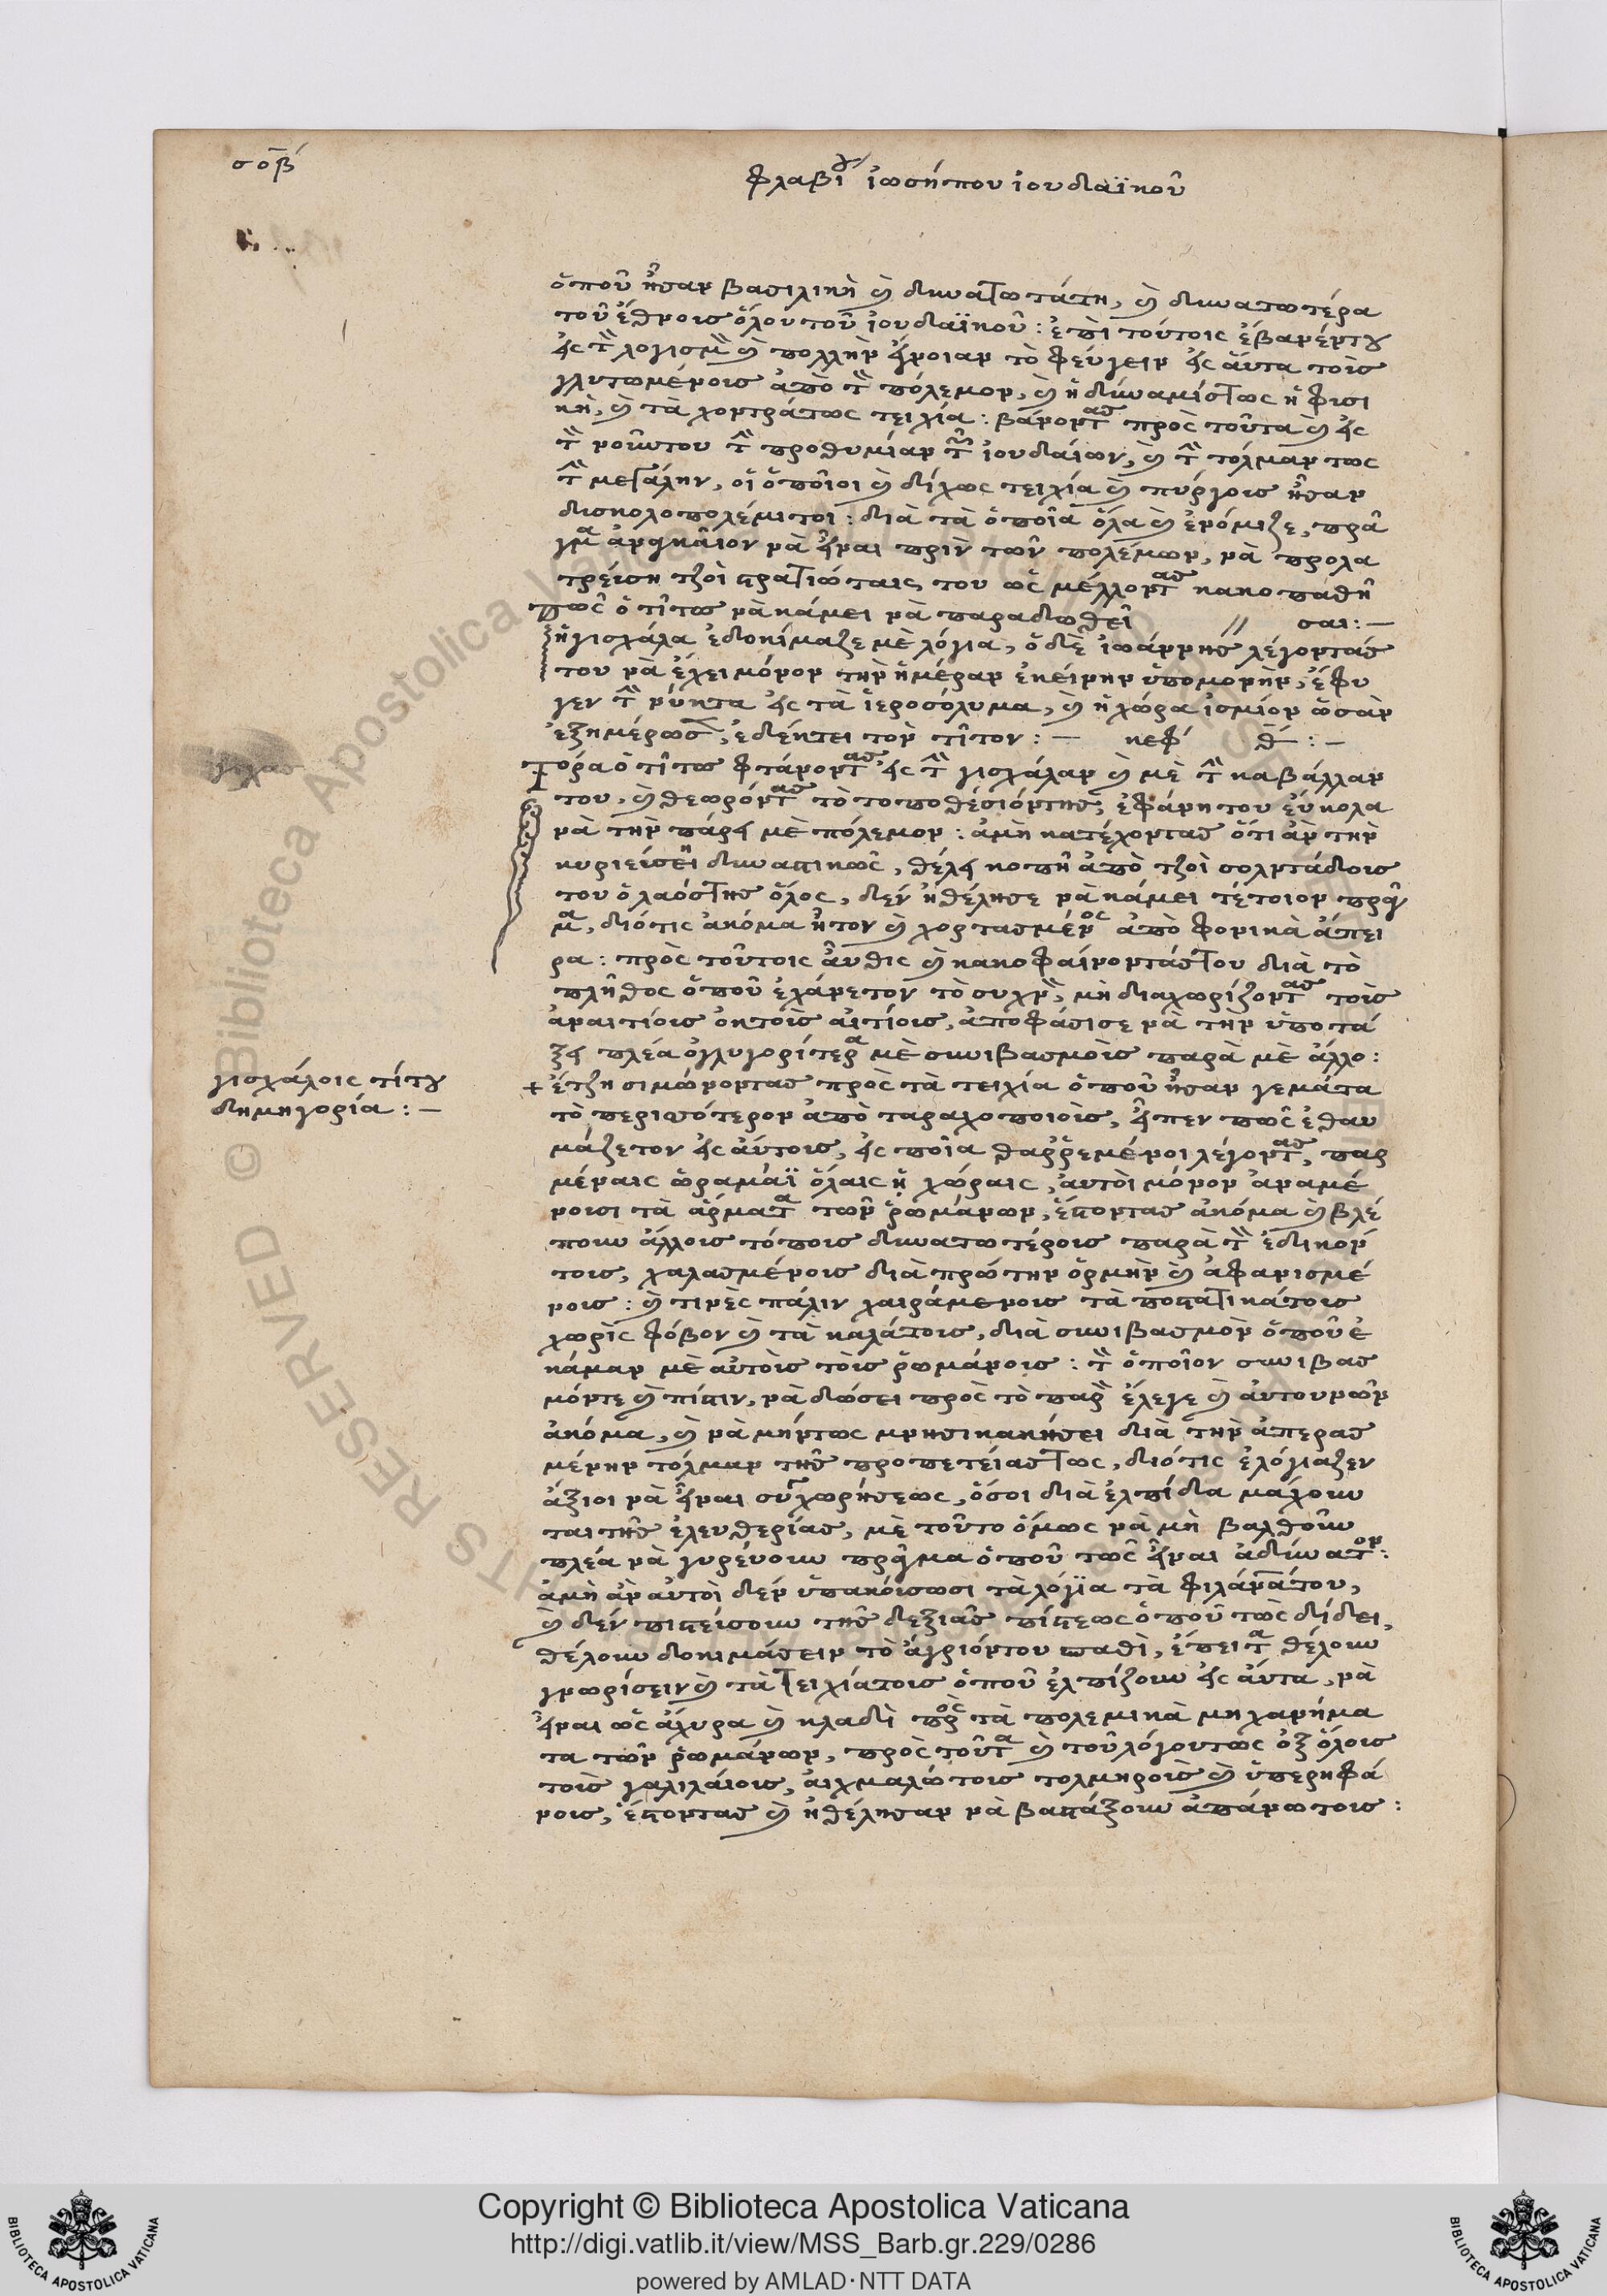 σοβ́
φλαβίου ἰωσήπου ἰουδαϊκοῦ
ὁποῦ ἦσαν βασιλικὴ καὶ δυνατωτάτη, καὶ δυνατωτέρα
τοῦ ἔθνοις ὅλου τοῦ ἰουδαϊκοῦ: ἐπὶ τούτοις ἐβανέντου
εἰς τὸν λογισμὸν καὶ πολλὴν ἔνοιαν τὸ φεύγειν εἰς αὐτα τοὶς
γλυτωμένοις ἀπὸ τὸν πόλεμον, καὶ ἡ δύναμίς τως ἡ φισι
κὴ, καὶ τὰ χοντράτως τειχία: βάνοντας πρὸς τοῦτα καὶ εἰς
τὸν νοῦντου τὴν προθυμίαν τῶν ἰουδαίων, καὶ τὴν τόλμαν τως
τὴν μεγάλην, οἱ ὁποῖοι καὶ δίχως τειχία καὶ πύργοις ἦσαν
δισκολοπολέμιτοι: διὰ τὰ ὁποῖα ὅλα καὶ ἐνόμιζε, πρᾶ
γμα ἀναγκαῖον νὰ εἶναι πρὶν τῶν πολέμων, νὰ προλα
τρεύση τζοὶ στρατιώταις του ὡς μέλλοντας κακοπαθῆ
πῶς ὁ τῖτος νὰ κάμει νὰ παραδωθεῖ // σαι:—
ἡ γισχάλα ἐδοκίμαζε μὲ λόγια, ὁ δὲ ἰωάννης λέγοντάς
του νὰ ἔχει μόνον τὴν ἡμέραν ἐκείνην ὑπομονὴν, ἔφυ
γεν τὴν νύκτα εἰς τὰ ἱεροσόλυμα, καὶ ἡ χώρα ἰσμίον ὡσὰν
ἐξημέρωσε, ἐδέκτει τὸν τῖτον:— κεφ΄ θ:—
τόρα ὁ τῖτος φτάνοντας εἰς τὴν γισχάλαν καὶ μὲ τὴν καβάλλαν
του, καὶ θεωρόντας τὸ τοποθέσιόντης, ἐφάνη του εὔκολα
νὰ τὴν πάρη μὲ πόλεμον: ἀμὴ κατέχοντας ὅτι ἂν τὴν
κυριεύσει δυνατικῶς, θέλη κοπῆ ἀπὸ τζοὶ σολντάδοις
του ὁ λαός της ὅλος, δὲν ἠθέλησε νὰ κάμει τέτοιον πρᾶγ
μα, διότις ἀκόμα ἦτον καὶ χορτασμένος ἀπὸ φονικὰ ἄπει
ρα: πρὸς τοῦτοις αὖθις καὶ κακοφαίνοντάς του διὰ τὸ
πλῆθος ὁποῦ ἐχάνετον τὸ συχνὸν, μὴ διαχωρίζοντας τοὶς
ἀναιτίοις ἐκ τοὶς αἰτίοις, ἀποφάσισε νὰ τὴν ὑποτά
ξη πλέα ὀγλυγορίτερα μὲ συνιβασμοὶς παρὰ μὲ ἄλλο:
γισχάλοις τίτου
δημηγορία:—
+ ἔτζη σιμώνοντας πρὸς τὰ τειχία ὁποῦ ἦσαν γεμάτα
τὸ περισσότερον ἀπὸ ταραχοποιοὶς, εἶπεν πῶς ἐθαυ
μάζετον εἰς αὐτοις, εἰς ποῖα θαρρεμένοι λέγοντας, παρ
μέναις ὡραμάϊ ὅλαις ἡ χώραις, αὐτοὶ μόνον ἀναμέ
νοισι τὰ ἅρματα τῶν ῥωμάνων, ἔστοντας ἀκόμα καὶ βλέ
πουν ἄλλοις τόποις δυνατωτέροις παρὰ τὸν ἐδικόν
τοις, χαλασμένοις διὰ πρώτην ὁρμὴν καὶ ἀφανισμέ
νοις: καὶ τινὲς πάλιν χαιράμενοις τὰ ποστατικάτοις
χωρὶς φόβον καὶ τὰ καλάτοις, διὰ συνιβασμὸν ὁποῦ ἐ
κάμαν μὲ αὐτοὶς τοὶς ῥωμάνοις: τὸν ὁποῖον συνιβασ
μόντε καὶ πίστιν, νὰ δώσει πρὸς τὸ παρὸν ἔλεγε καὶ αὐτουνῶν
ἀκόμα, καὶ νὰ μήντως μνησικακήσει διὰ τὴν ἀπερασ
μένην τόλμαν τῆς προπετείας τως, διότις ἐλόγιαζεν
ἄξιοι νὰ εἶναι συγχωρήσεως, ὅσοι διὰ ἐλπίδα μάχουν
ται τῆς ἐλευθερίας, μὲ τοῦτο ὅμως νὰ μὴ βαλθοῦν
πλέα νὰ γυρεύουν πρᾶγμα ὁποῦ τῶς εἶναι ἀδύνατον:
ἀμὴ ἂν αὐτοὶ δεν ὑπακόισωσι τὰ λόγϊα τὰ φιλάνατου,
καὶ δὲν πιστεύσουν τῆς δεξιᾶς πίστεως ὁποῦ τῶς δίδει,
θέλουν δοκιμάσειν τὸ ἄγριόντου σπαθὶ, ἔπειτα θέλουν
γνωρίσειν καὶ τὰ τειχίατοις ὁποῦ ἐλπίζουν εἰς αὐτά, νὰ
εἶναι ὡς ἄχυρα καὶ κλαδὶ πρὸς τὰ πολεμικὰ μηχανήμα
τα τῶν ῥωμάνων, πρὸς τοῦτα καὶ τοῦ λόγουτως ὀξ ὅλοις
τοὶς γαλιλαίοις, αἰχμαλώτοις τολμηροὶς καὶ ὑπερηφά
νοις, ἔστοντας καὶ ἠθέλησαν νὰ βαστάξουν ἀπάνωτοις:
Copyright © Biblioteca Apostolica Vaticana
http://digi.vatlib.it/view/MSS_Barb.gr.229/0286
powered by AMLAD·NTT DATA